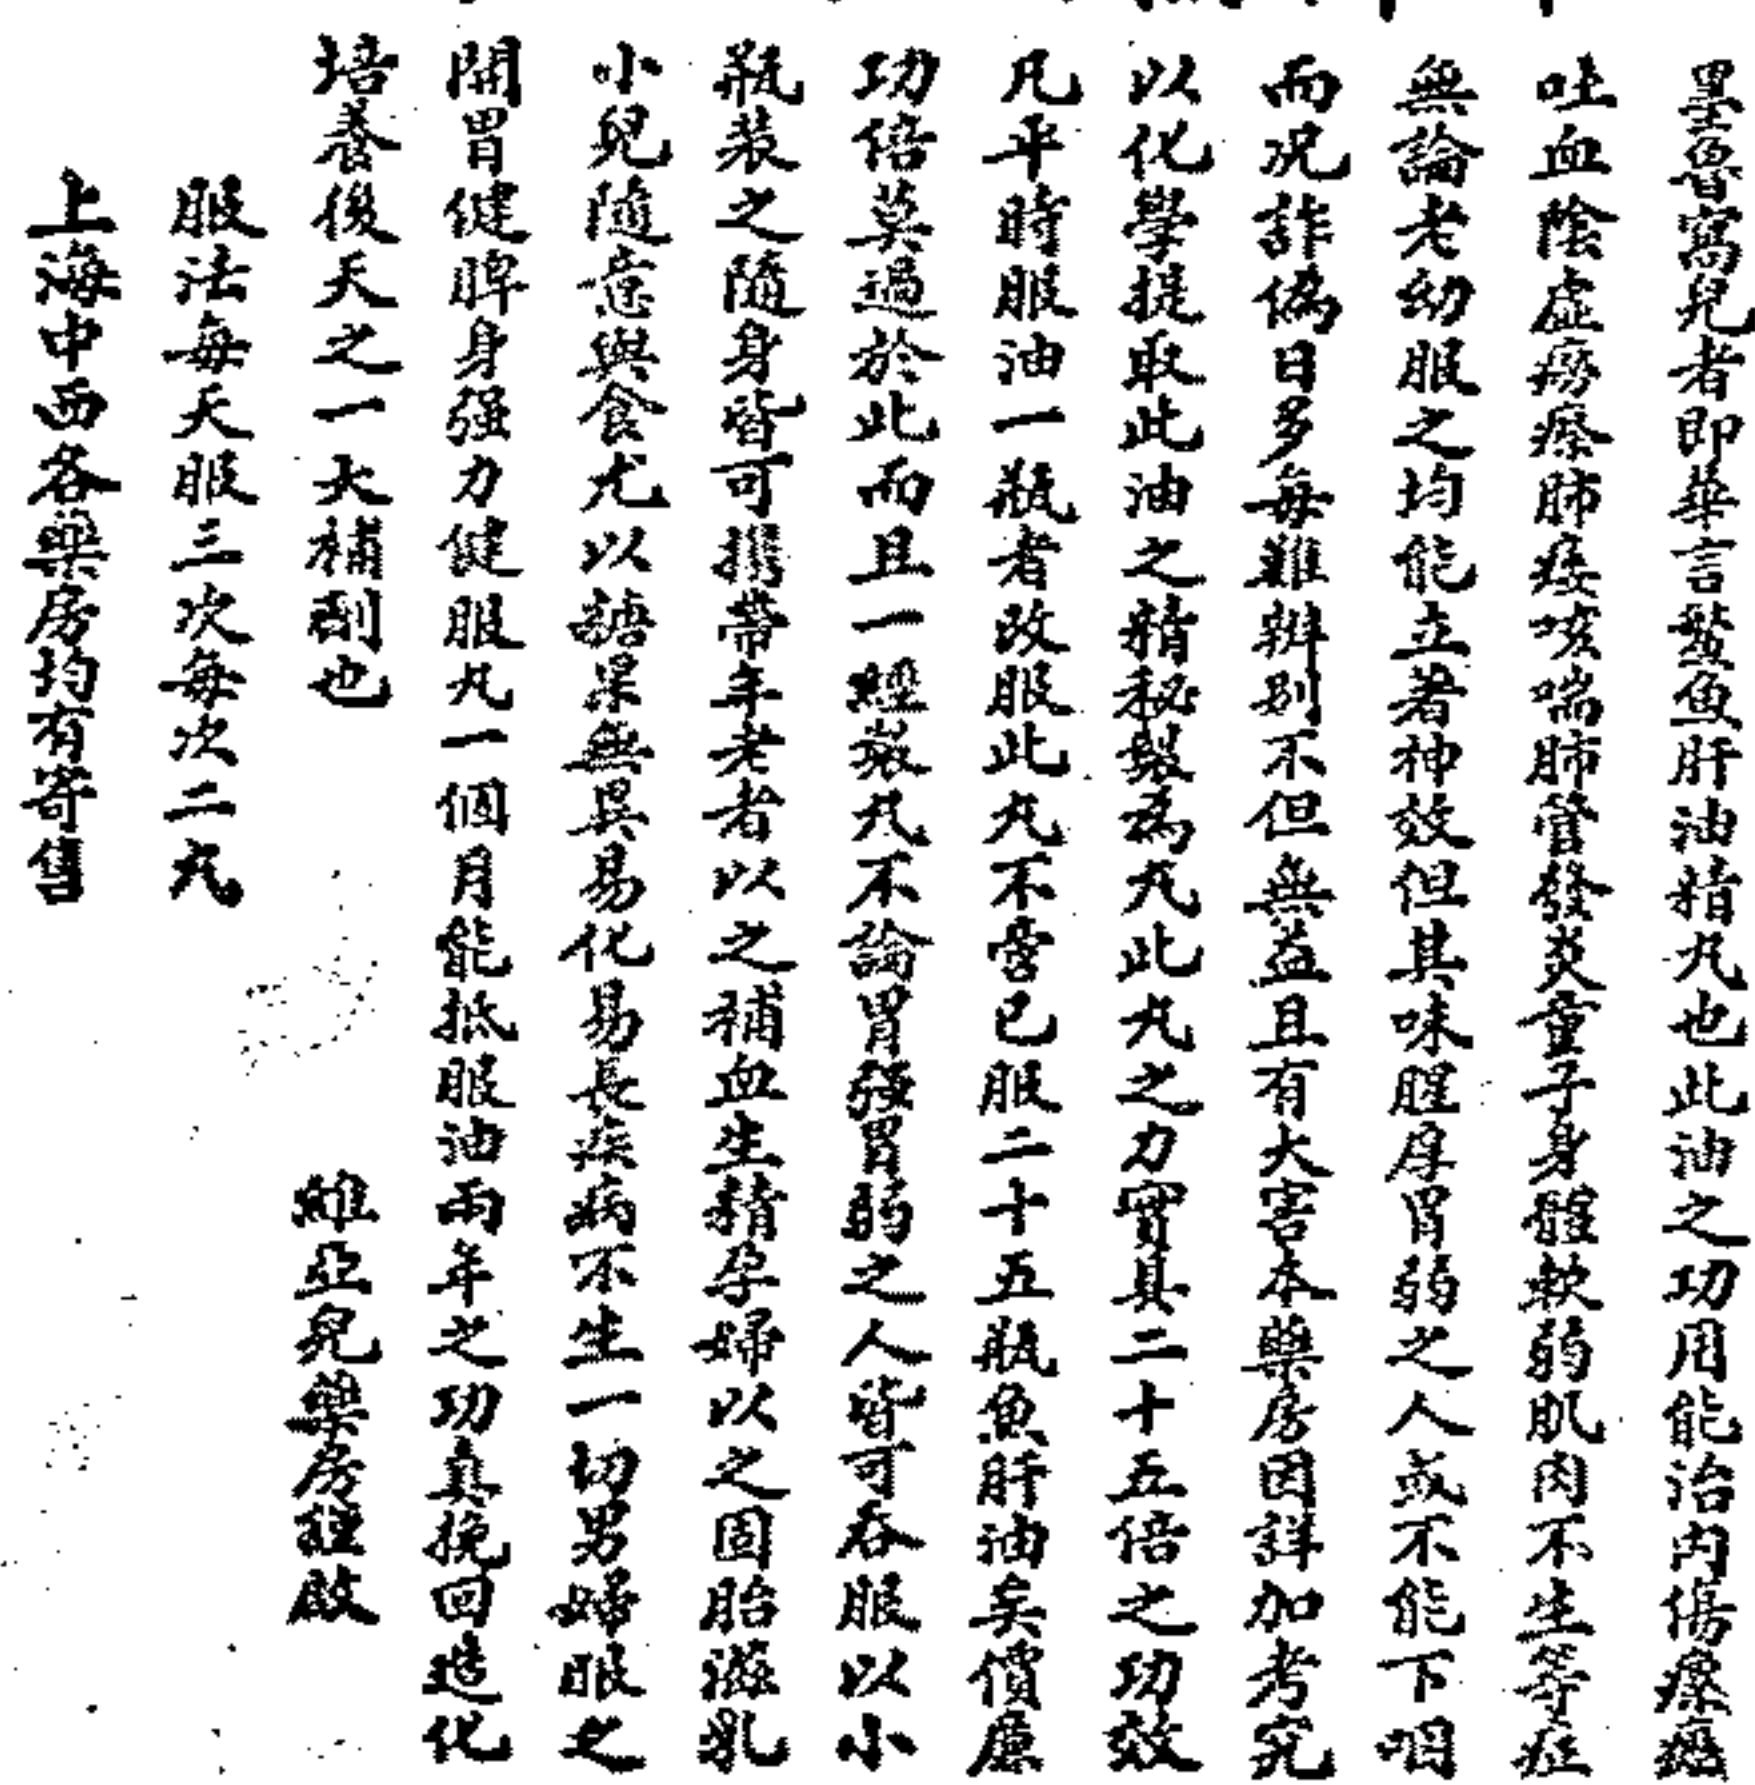 墨魯寫兒者即華言鰵魚肝油精丸也此油之功用能治內傷瘰癧
吐血陰虛癆瘵肺痿咳喘肺管發炎童子身體軟弱肌肉不生等症
無論老幼服之均能立著神效但其味腥厚胃弱之人或不能下咽
而况詐偽日多每難辨别不但無益且有大害本藥房因詳加考究
以化學提取此油之精秘製為丸此丸之力實具二十五倍之功效
凡平時服油一瓶者改服此丸不啻已服二十五瓶魚肝油矣價廉
功倍莫過於此而且一經裝丸不論胃强胃弱之人皆可吞服以小
瓶裝之隨身皆可攜帶年老者以之補血生精孕婦以之固胎滋乳
小兒隨意與食尤以糖果無異易化易長疾病不生一切男婦服之
開胃健脾身强力健服丸一個月能抵服油兩年之功真挽回造化
培養後天之一大補劑也
維亞兒藥房謹啟
服法每天服三次每次二丸
上海中西各藥房均有寄售